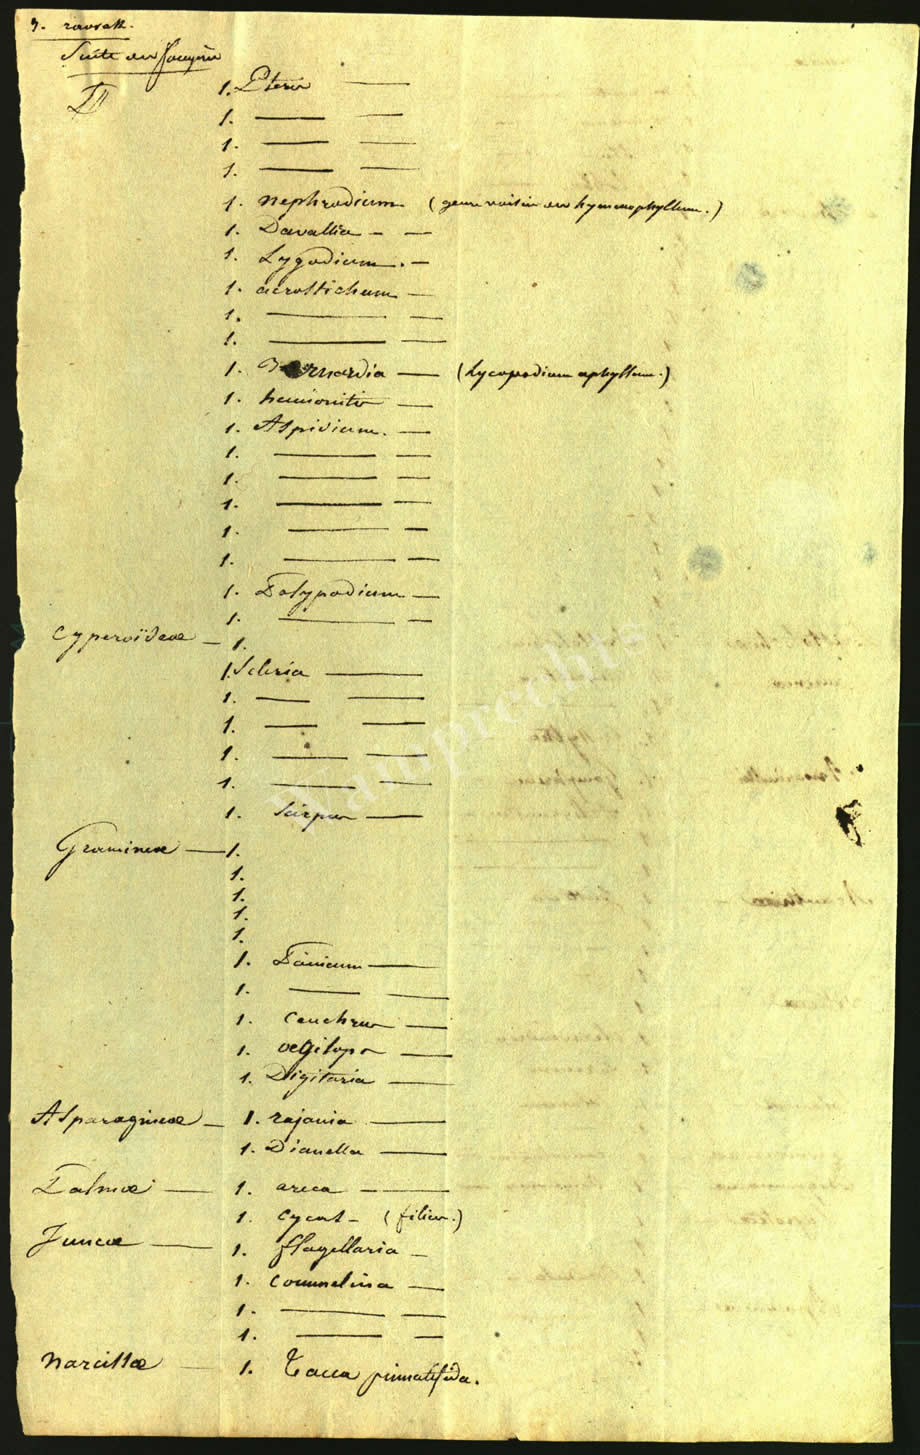 3.
Suite des fougères
1. Pteris —
1. — —
1. — —
1. — —
1. nephrodium (genre voisin des hymenophyllum.)
1. Davallia - —
1. Lygodium. —
1. acrostichum —
1. — —
1. — —
1. Bernardia — (Lycopodium aphyllum.)
1. hemionitis —
1. Aspidium. —
1. — —
1. — —
1. — —
1. — —
1. — —
1. Polypodium —
1. — —
Cyperoïdeae — 1.
1. Scleria —
1. — —
1. — —
1. — —
1. — —
1. Scirpus —
Gramineae — 1.
1.
1.
1.
1.
1. Panicum —
1. — —
1. Cenchrus —
1. aegilops —
1. Digitaria —
Asparagineae — 1. rajania —
1. Dianella —
Palmae — 1. areca —
1. Cycas — (filices.)
Junceae — 1. flagellaria —
1. Commelina —
1. — —
1. — —
narcissae — 1. Tacca pinnatifida.
Wamprechts